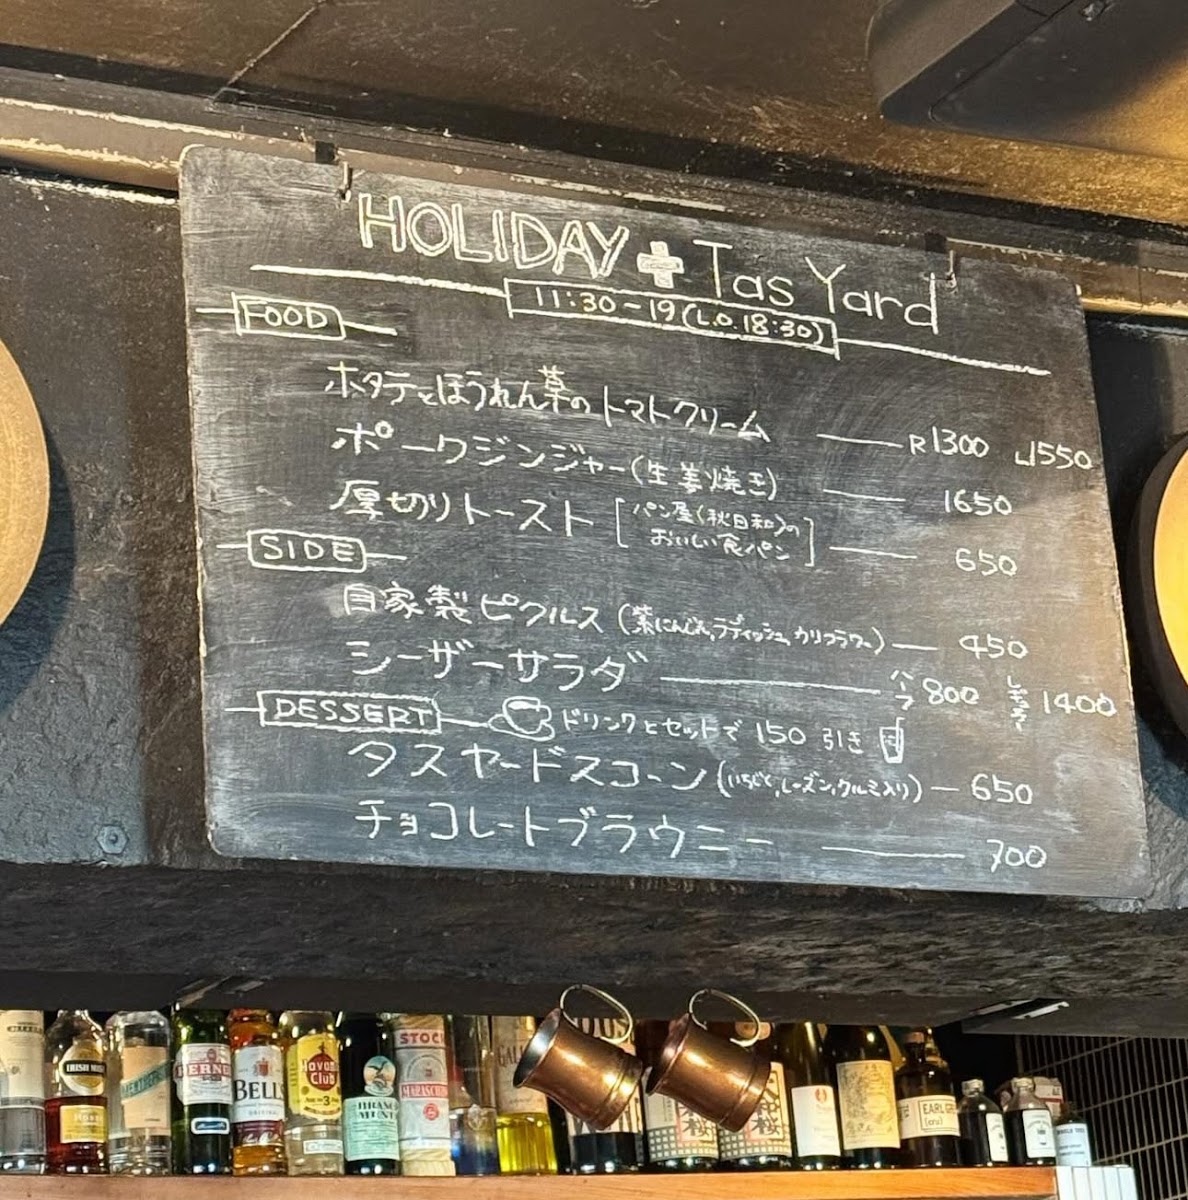 HOLIDAY + Tas Yard
11:30-19(L.O.18:30)
FOOD
ホタテとほうれん草のトマトクリーム — R1300 L1550
ポークジンジャー(生姜焼き) — 1650
厚切りトースト [パン屋(秋日和)の
おいしい食パン] — 650
SIDE
自家製ピクルス(紫にんじん,ラディッシュ,カリフラワー) — 450
シーザーサラダ — ハーフ 800 レギュラー 1400
DESSERT ドリンクとセットで 150 引き
タスヤードスコーン(いちじく,レーズン,クルミ入り) — 650
チョコレートブラウニー — 700
IRISH MIST
BELL'S
ORIGINAL
Havana
Club
3
STOCK
MARASCHINO
EARL GREY
[cru]